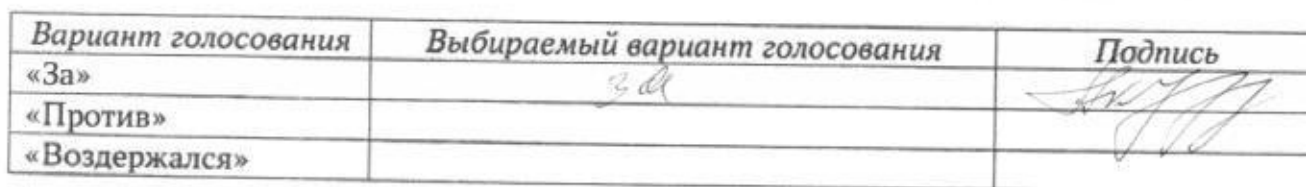 Вариант голосования Выбираемый вариант голосования Подпись
«За» за
«Против»
«Воздержался»